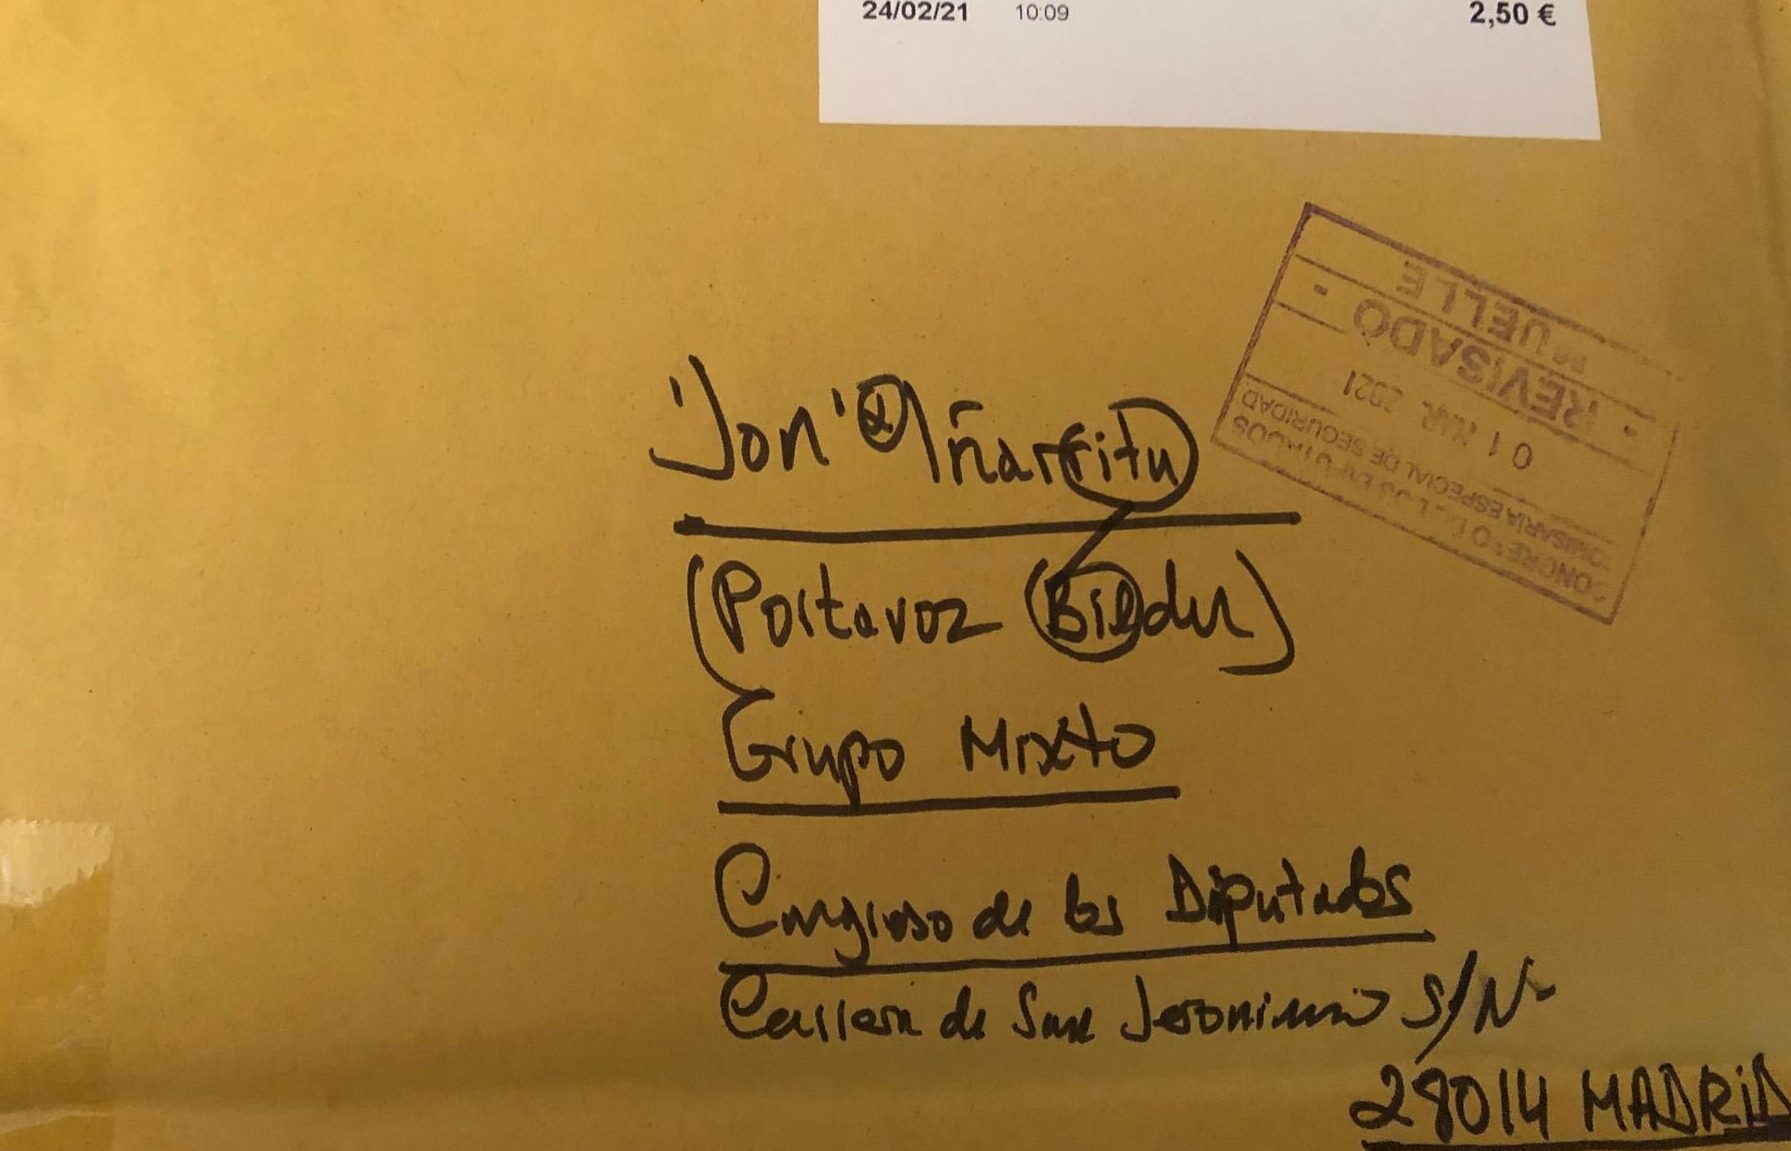 24/02/21 10:09 2,50 €
Jon Iñarritu
(Portavoz Bildu)
Grupo Mixto
Congreso de los Diputados
Carrera de San Jeronimo S/N
28014 MADRID
COMISARÍA ESPECIAL DE SEGURIDAD
01 MAR. 2021
- REVISADO -